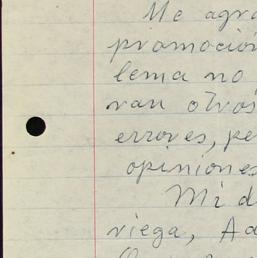 Me agra
promoción
lema no
van otros
errores, pe
opiniones
Mi d
riega, Ad